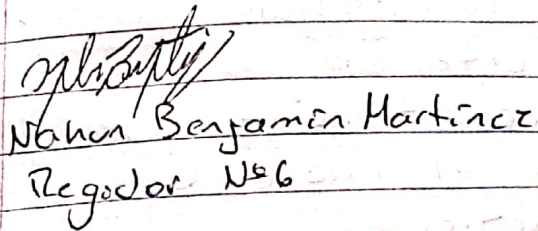 Nahun Benjamin Martinez
Regodor Nº6